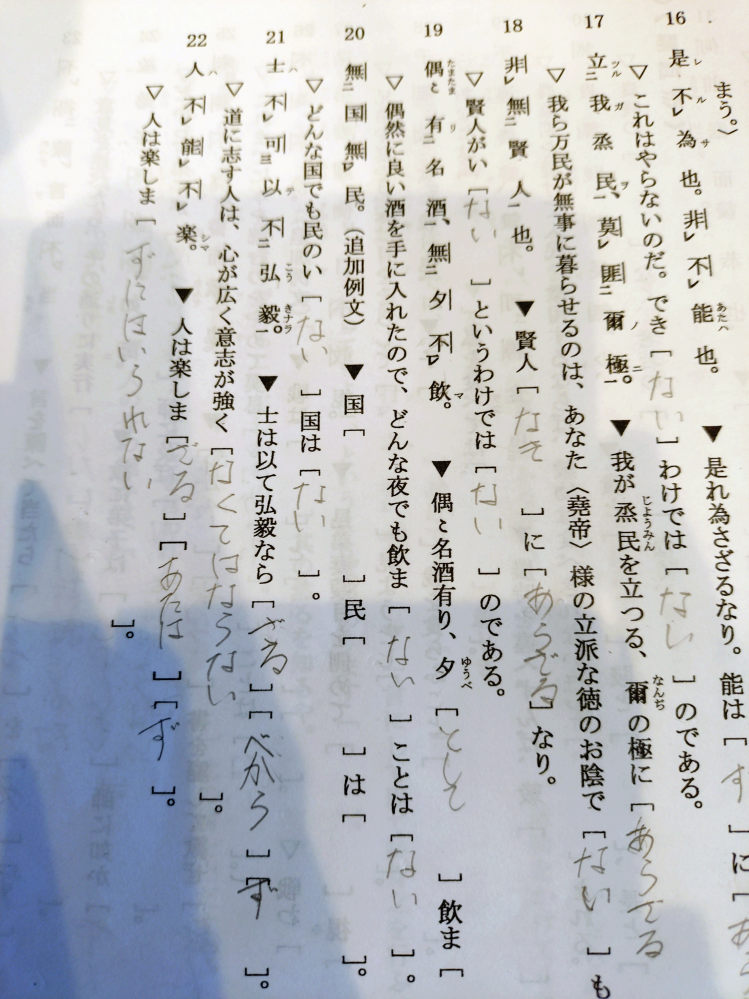 まう。〉
16 是レ不ルレ為サ也。非レ不レ能あたハ也。 ▼是れ為さざるなり。能は[ず]に[あ
▽これはやらないのだ。でき[ない]わけでは[なし]のである。
17 立ツル二我ガ烝民ヲ一、莫レ匪二爾ノ極ニ一。 ▼我が烝民じようみんを立つる、爾なんぢの極に[あらざる
▽我ら万民が無事に暮らせるのは、あなた〈堯帝〉様の立派な徳のお陰で[ない]も
18 非レ無二賢人一也。 ▼賢人[なき]に[あらざる]なり。
▽賢人がい[ない]というわけでは[ない]のである。
19 偶たまたまミ有リ二名酒一、無二夕不レ飲マ。 ▼偶ミ名酒有り、夕ゆうべ[として]飲ま[
▽偶然に良い酒を手に入れたので、どんな夜でも飲ま[ない]ことは[ない]。
20 無二国無レ民。(追加例文) ▼国[ ]民[ ]は[ ]。
▽どんな国でも民のい[ない]国は[ない]。
21 士ハ不レ可三以テ不二弘こう毅きナラ一。 ▼士は以て弘毅なら[ざる][べから]ず[ ]。
▽道に志す人は、心が広く意志が強く[なくてはならない]。
22 人ハ不レ能レ不レ楽シマ。 ▼人は楽しま[ざる][あたは][ず]。
▽人は楽しま[ずにはいられない]。